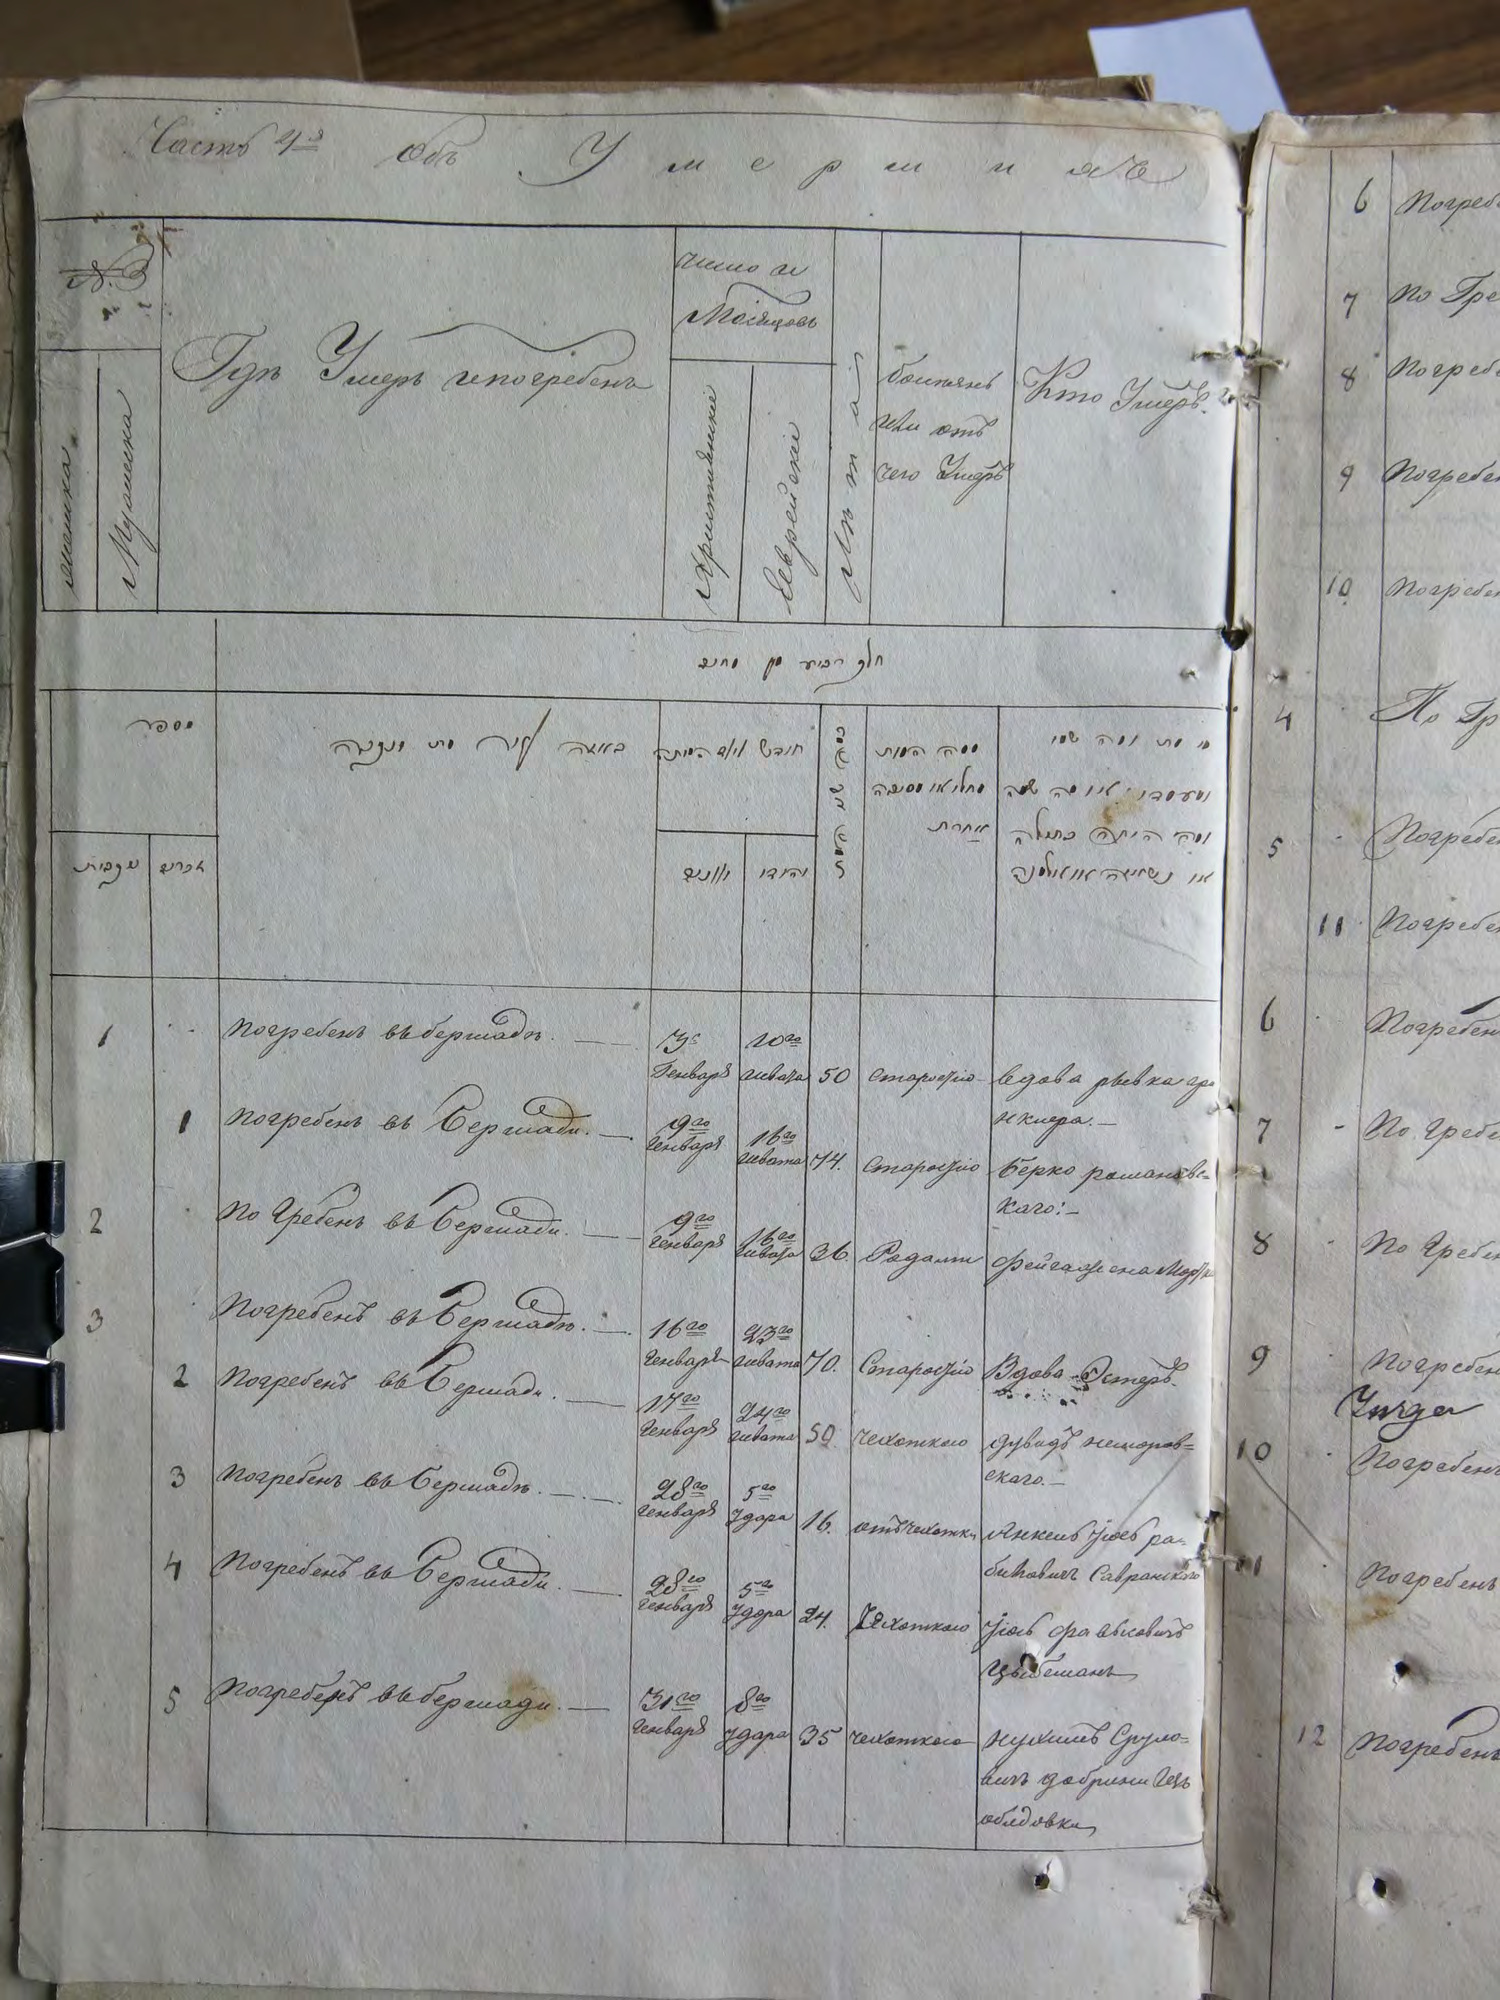 Часть 4я объ Умершихъ
№
женска
Мужеска
Гдѣ Умеръ и погребенъ
число и
Мѣсяцовъ
Христіянскіе
Еврейскіе
Лѣта
болѣзнь
или отъ
чего Умеръ
Кто Умеръ.
חלק רביעי מן מתים
מספר
נקבות
זכרים
באיזה עיר מת ונקבר
חודש ויום המיתה
יונים
יהודי
כמה שני המת
ממה המות
מחלי או מסיבה
אחרת
מי מת ומה שמו
ומעמדו או מה שמה
ומה היתה בתולה
או נשואה או אלמנה
1 Погребенъ въ бершадѣ. 3го Генваря 10го шевата 50 старостію вдова рывка
1 Погребенъ въ Бершади. 9го Генваря 16го шевата 74. старостію Берко романовс=
каго:
2 Погребенъ въ Бершади. 9го Генваря 16го шевата 36. Родами фейга жена
3 Погребенъ въ Бершадѣ. 16го Генваря 23го шевата 70. Старостію Вдова Эстеръ.
2 Погребенъ въ Бершади. 17го Генваря 24го шевата 50 чехоткою дувидъ немиров=
скаго.
3 Погребенъ въ Бершадѣ. 28го Генваря 5го Удара 16. отъ чехотки Янкель Іось ра=
биновичъ Савранскаго
4 Погребенъ въ Бершади. 28го Генваря 5го Удара 24. Чехоткою Іось
5 Погребенъ въ бершади. 31го Генваря 8го Удара 35 чехоткою нухимъ Сруло=
вичъ
ободовка
6 Погребе
7 По Гре
8 Погребе
9 Погребен
10 Погребен
4 По Гр
5 Погребен
11 Погребен
6 Погребен
7 По Гребе
8 По Гребен
9 Погребен
10 Погребенъ
11 Погребенъ
12 Погребенъ